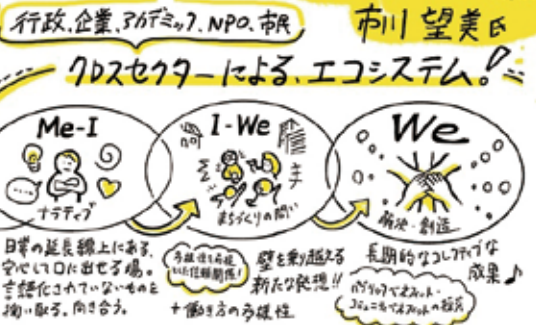 行政、企業、アカデミック、NPO、市民
市川 望美氏
クロスセクターによる、エコシステム!
Me-I
ナラティブ
I-We
まちづくりの問い
We
解決・創造
日常の延長線上にある、
安心して口に出せる場。
言語化されていないものを
掬い取る。向き合う。
多様性を前提
とした信頼関係!
壁を乗り越える
新たな発想!!
+働き方の多様性
長期的なコレクティブな
成果♪
パブリックベネフィット・
コミュニティベネフィットの